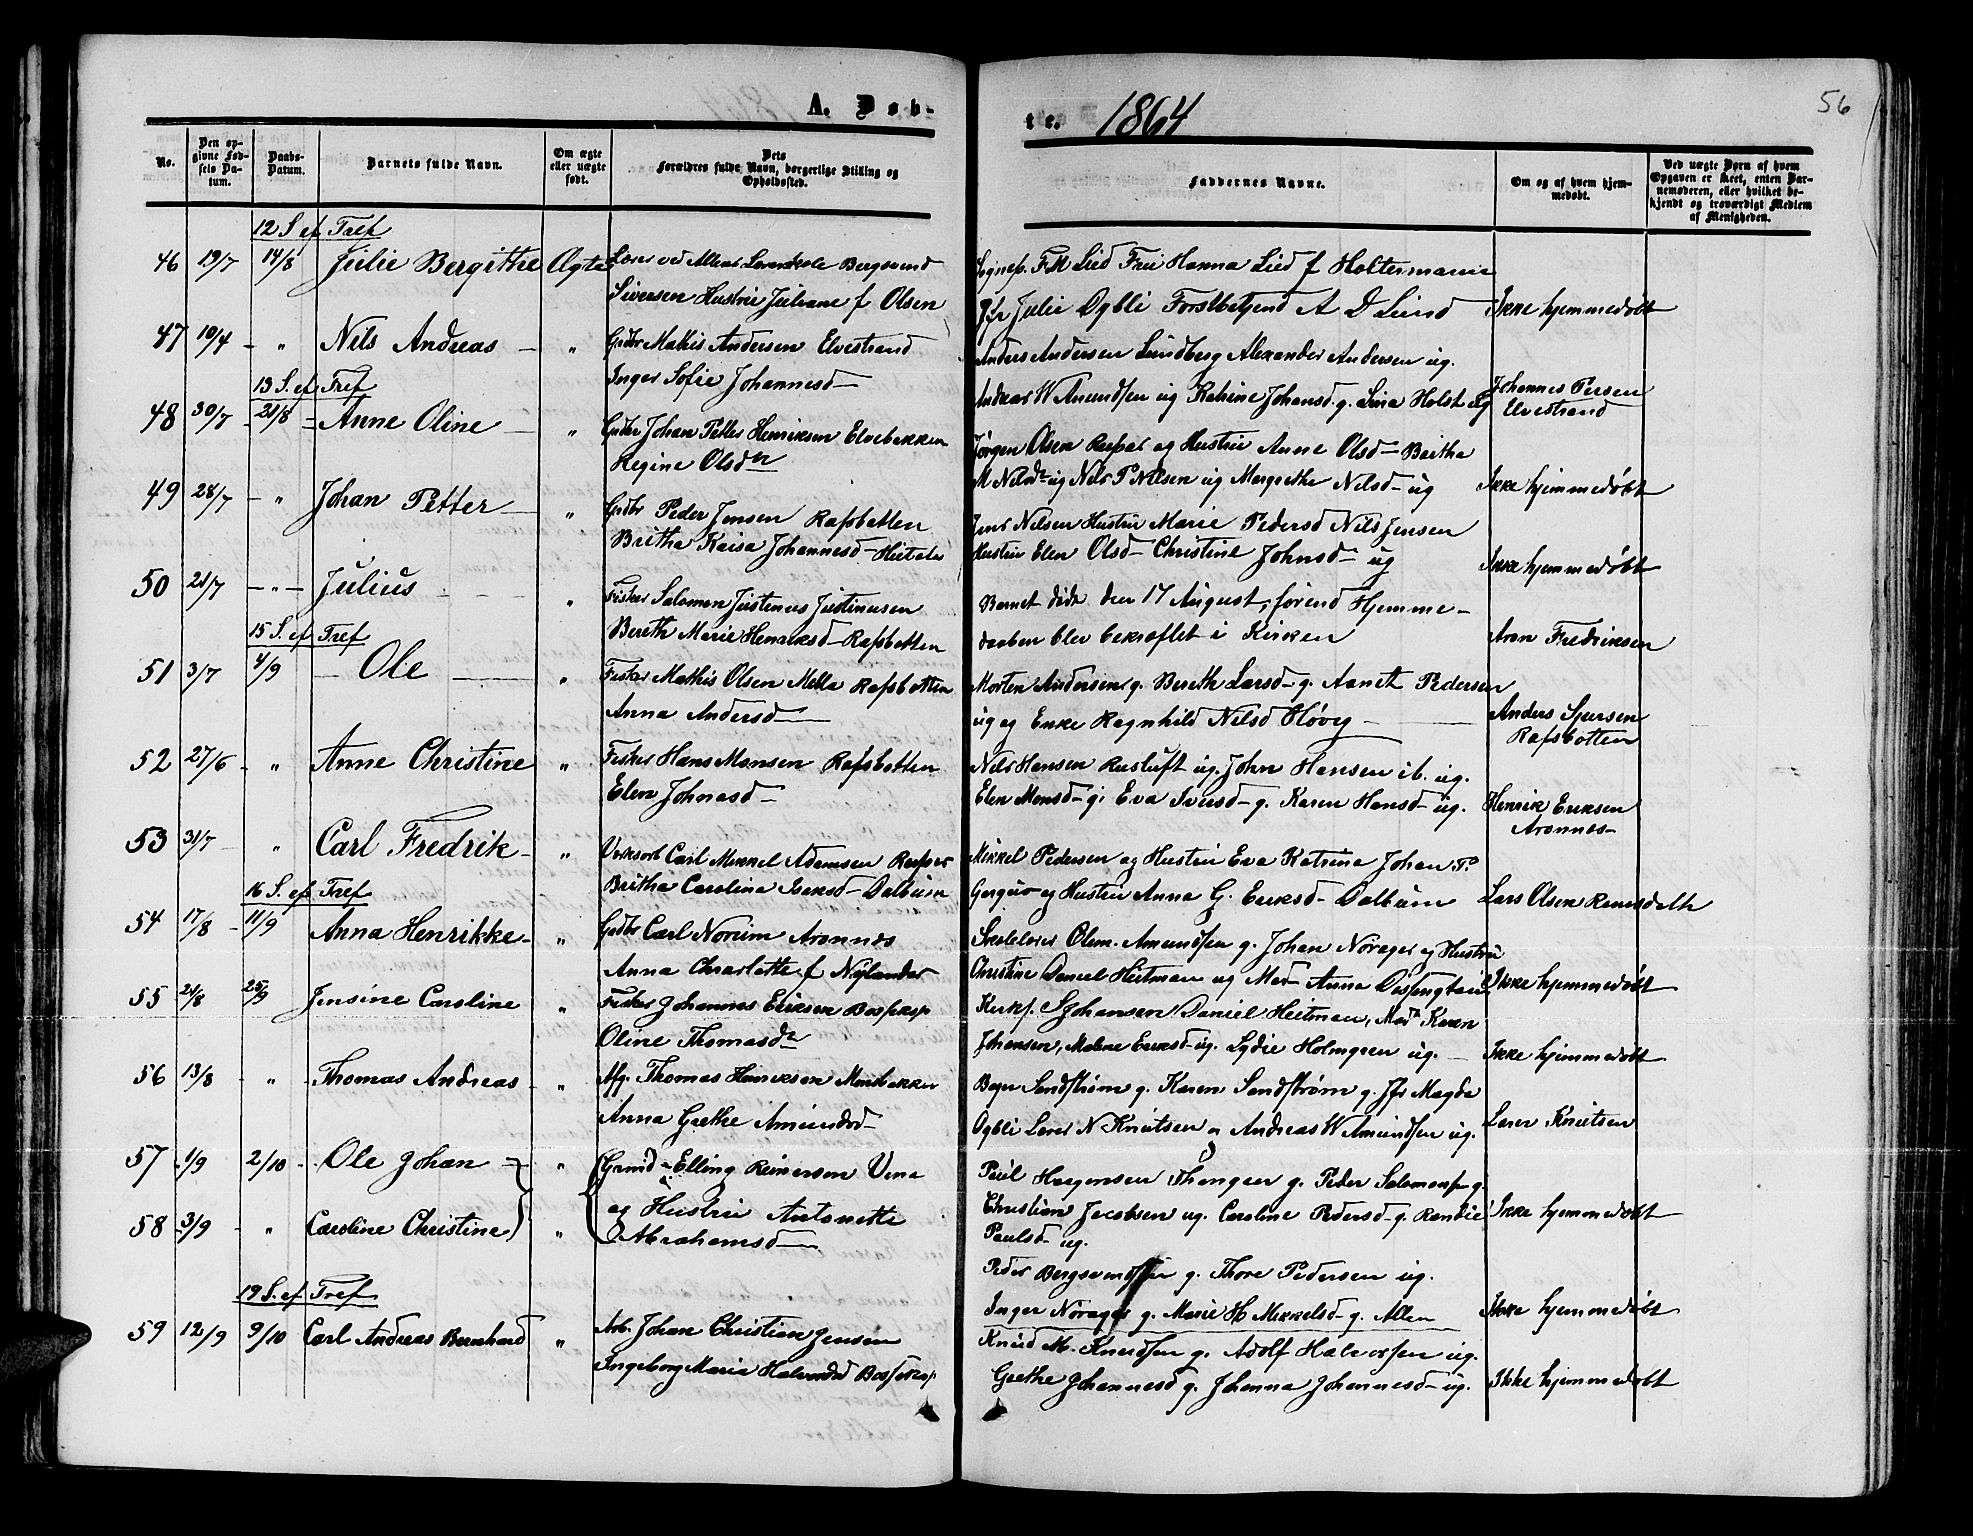 A. Døb-
te. 1864
56
No.
Den op-
givne Fød-
sels Da-
tum.
Daabs-
Datum.
Barnets fulde Navn.
Om ægte
eller uægte
født.
Dets
Forældres fulde Navn, borgerlige Stilling og
Opholdssted.
Faddernes Navne.
Om og af hvem hjem-
medøbt.
Ved uægte Børn af hvem
Opgaven er skeet, enten Bar-
nemoderen, eller hvilket be-
kjendt og troværdigt Medlem
af Menigheden.
12 S. ef Tref
46 19/7 14/8 Julie Bergithe Ægte Lærer ved Bergsvend
Siversen Hustru Juliane f Olsen
Sognep. F M Lied Frue Hanna Lied f Holtermann
Jfr Julie Øgbli Forstbetjend A D Lund
Ikke hjemmedøbt
47 10/4 - " Nils Andreas - " Gadbr Mathis Andersen Elvestrand
Inger Sofie Johannesd-
Anders Andersen Lundberg Alexander Andersen ug.
Andreas W Amundsen ug Katrine Johansd. g. Lina Holst ug
Johannes Persen
Elvestrand
13 S. ef Tref
48 30/7 21/8 - Anne Oline - " Gadbr Johan Petter Henriksen Elvebakken
Regine Olsdtr
Jørgen Olsen Raipas og Hustru Anne Olsd- Beritha
M Nilsdtr ug Nils P Nilsen ug Margrethe Nilsd- ug
Ikke hjemmedøbt
49 28/7 - " Johan Petter - " Gadbr Peder Jensen Rafsbotten
Britha Kaisa Johannesd-
Jens Nilsen Hustru Marie Pedersd Nils Jensen
Hustru Elen Olsd- Christine Johnsd- ug
Ikke hjemmedøbt
50 21/7 - " - Julius " Fisker Salomon Justinus Justinusen
Bereth Marie Henriksd- Rafsbotten
Barnet døde den 17 August, førend Hjemme-
daaben blev bekræftet i Kirken
Aron Fredriksen
15 S. ef Tref
51 3/7 4/9 - Ole - " Fisker Mathis Olsen Mella Rafsbotten
Anna Andersd-
Morten Andersen g. Bereth Larsd-. g. Pedersen
ug og Enke Ragnhild Nilsd Høvg -
Anders Sjursen
Rafsbotten
52 27/6 - " Anne Christine " Fisker Hans Monsen Rafsbotten
Elen Johnesd-
Nils Hansen Rusluft ug. John Hansen ib. ug.
Elen Monsd- g. Eva Iversd- g. Karen Hansd- ug.
Henrik Eriksen
Aronnes-
53 31/7 " Carl Fredrik - " Carl Mikkel Adamsen Raipas
Britha Carolina Eriksd- Dalbum
Mikkel Pedersen og Hustru Eva Katrina Johan P.
og Hustru Anna G. Eriksd- Dalbum
Lars Olsen
16 S. ef Tref
54 17/8 - 11/9 Anna Henrikke - " Gadbr Carl Norum Aronnes
Anna Charlotte f Nylander
Skolelærer Olem. Amundsen g. Johan Nørager og Hustru
Christine Daniel Heitman ug Mad- Anna
Ikke hjemmedøbt
55 21/8 25/9 Jensine Caroline " Fisker Johannes Eriksen Bossekop
Oline Thomasdtr
Kirks. S Johansen Daniel Heitman, Mad. Karen
Johansen, Malene Eriksd- ug. Lydie Holmgren ug. -
Ikke hjemmedøbt
56 13/8 " Thomas Andreas - " Thomas Henriksen
Anna Grethe Amundsd-
Sandstrøm g. Karen Sandstrøm g. Jfr Magda
Øgbli Lærer N Knutsen Andreas W Amundsen ug.
Lærer Knutsen
57 1/9 2/10 - Ole Johan - " Elling Reiersen
og Hustru Antonette
Abrahamsd-
Paul g. Peder g.
Christian Jacobsen ug. Caroline Pedersd- g.
Paulsd- ug.
Ikke hjemmedøbt
58 3/9 - " Caroline Christine "
Peder Bergsvendsen g. Thore Pedersen ug.
Inger Nørager g. Marie H Mikkelsd- g. Alten
Ikke hjemmedøbt
19 S. ef Tref
59 12/9 9/10 Carl Andreas Bernhard " Arb. Johan Christian Jensen
Ingeborg Marie Bossekop
Knud M. Knudsen g. Adolf Halvorsen ug.
Grethe Johannesd g. Johanna Johannesd- ug.
Ikke hjemmedøbt